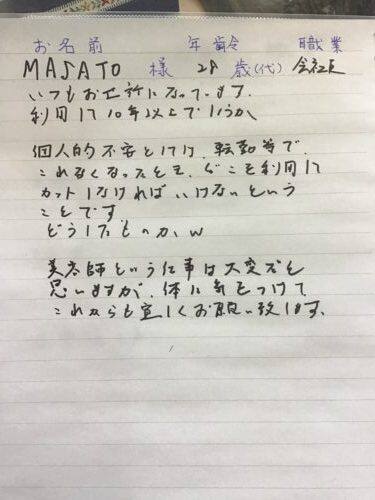 お名前 年齢 職業
MASATO 様 28 歳(代) 会社員
いつもお世話になっています。
利用して10年以上でしょうか、
個人的不安としては、転勤等で
これなくなったとき、どこを利用して
カットしなければいけないという
ことです。
どうしたものか、w
美容師という仕事は大変だと
思いますが、体に気をつけて
これからも宜しくお願い致します。